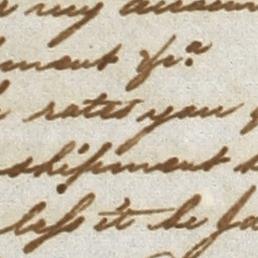 my accoun
ment &c.a
rates you
shipment
less it be fa